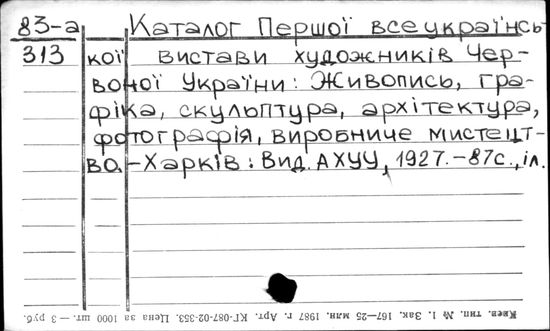 83-а Каталог Першої всеукраїнсь-
313 кої вистави художників Чер-
воної України: Живопись, гра-
фіка, скульптура, архітектура,
фотографія, виробниче мистецт-
во. – Харків: Вид. АХУУ, 1927. – 87с., іл.
Киев. тип. № 1. Зак. 167—25 млн. 1987 г. Арт. КГ-087-02-353. Цена за 1000 шт. — 3 руб.